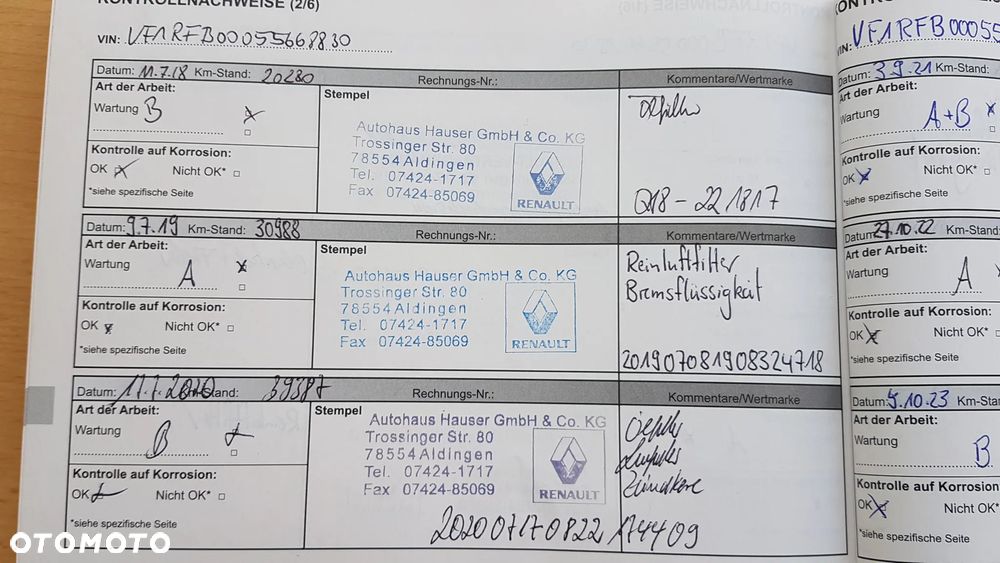 KONTROLLNACHWEISE (2/6)
VIN: VF1RFB00055668830
Datum: 11.7.18 Km-Stand: 20280 Rechnungs-Nr.: Kommentare/Wertmarke
Art der Arbeit:
Wartung B
Stempel
Autohaus Hauser GmbH & Co. KG
Trossinger Str. 80
78554 Aldingen
Tel. 07424-1717
Fax 07424-85069
RENAULT
Kontrolle auf Korrosion:
OK Nicht OK*
*siehe spezifische Seite
Q18-221817
Datum: 9.7.19 Km-Stand: 30988 Rechnungs-Nr.: Kommentare/Wertmarke
Art der Arbeit:
Wartung A
Stempel
Autohaus Hauser GmbH & Co. KG
Trossinger Str. 80
78554 Aldingen
Tel. 07424-1717
Fax 07424-85069
RENAULT
Reinluftfilter
Bremsflüssigkeit
Kontrolle auf Korrosion:
OK Nicht OK*
*siehe spezifische Seite
201907081908324718
Datum: 17.7.2020 Km-Stand: 39387 Rechnungs-Nr.: Kommentare/Wertmarke
Art der Arbeit:
Wartung B
Stempel
Autohaus Hauser GmbH & Co. KG
Trossinger Str. 80
78554 Aldingen
Tel. 07424-1717
Fax 07424-85069
RENAULT
Kontrolle auf Korrosion:
OK Nicht OK*
*siehe spezifische Seite
20200717082217 4409
VIN: VF1RFB00055
Datum: 3.9.21 Km-Stand:
Art der Arbeit:
Wartung A+B
Kontrolle auf Korrosion:
OK Nicht OK*
*siehe spezifische Seite
Datum: 27.10.22 Km-Stand:
Art der Arbeit:
Wartung A
Kontrolle auf Korrosion:
OK Nicht OK*
*siehe spezifische Seite
Datum: 5.10.23 Km-Sta
Art der Arbeit:
Wartung B
Kontrolle auf Korrosion:
OK Nicht OK*
*siehe spezifische Seite
OTOMOTO